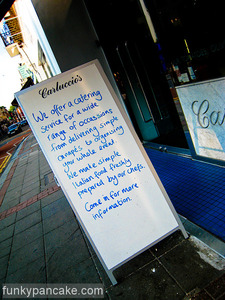 Carluccio's
We offer a catering
service for a wide
range of occasions
from delivering simple
canapés to organising
your whole event.
We make simple
Italian food freshly
prepared by our chefs.
Come in for more
information.
Ca
funkypancake.com